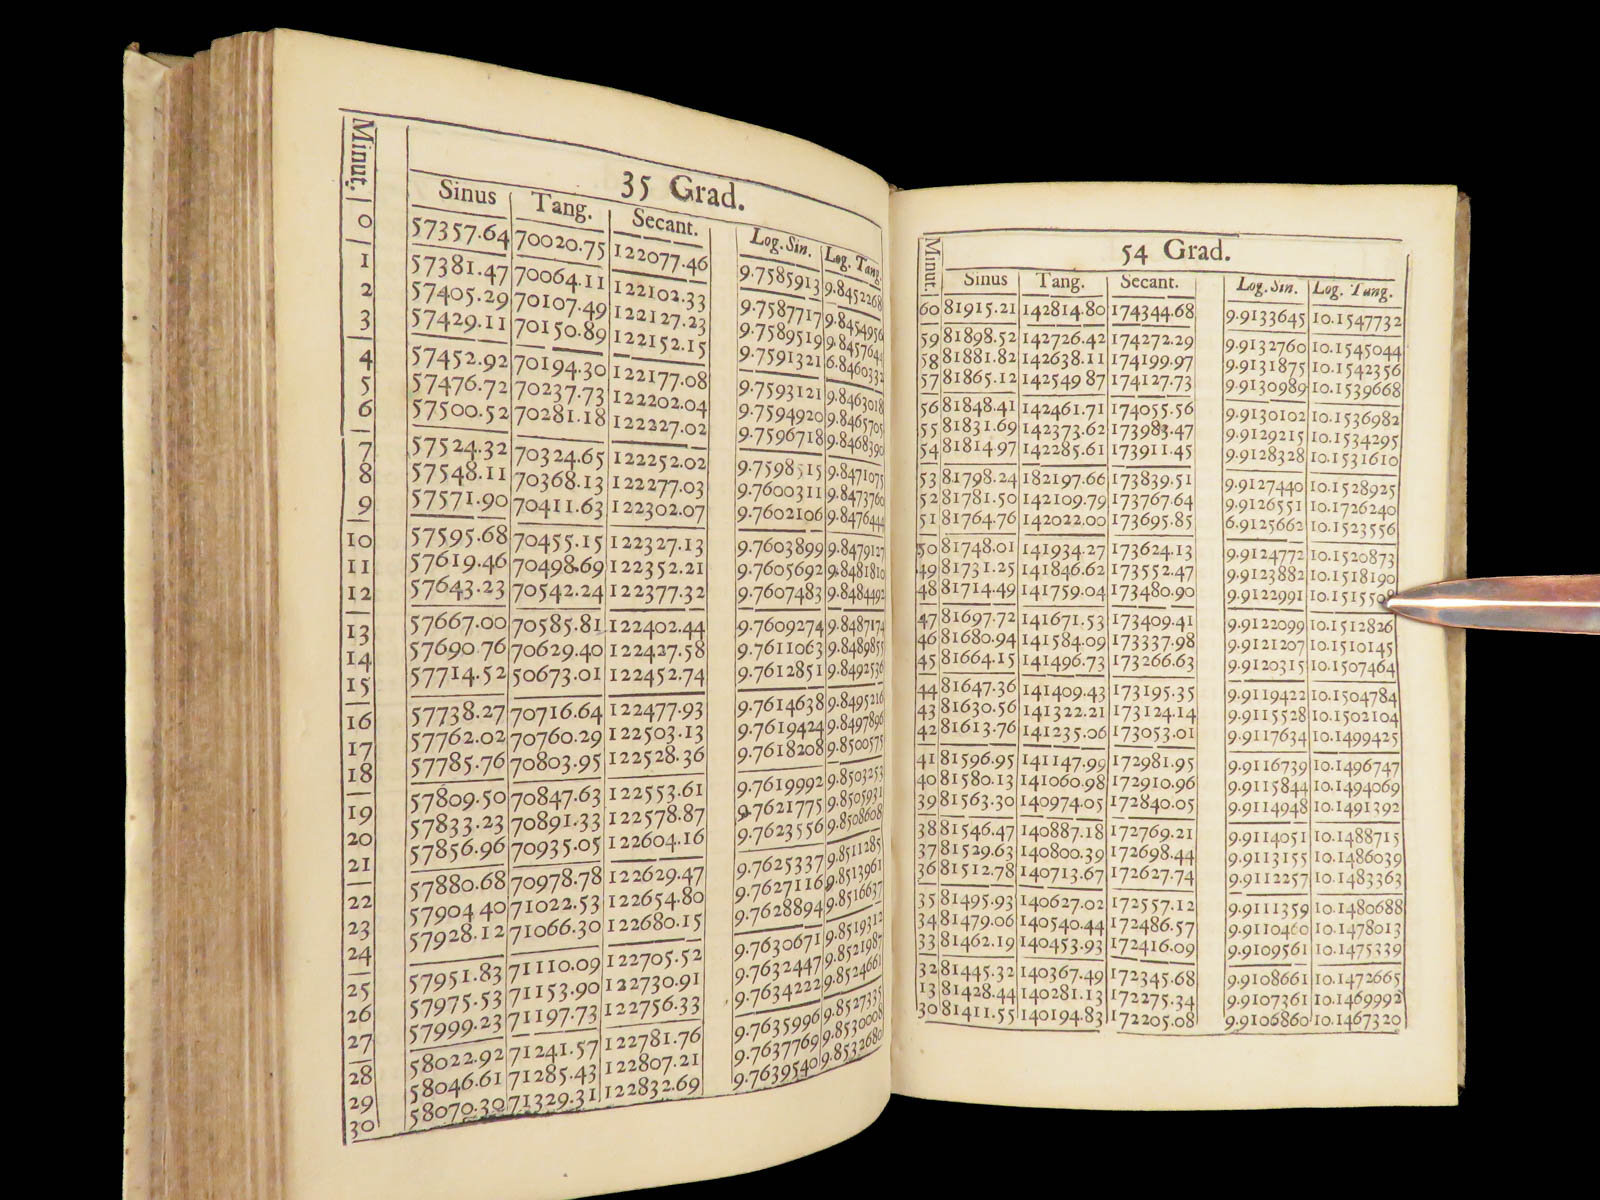 35 Grad.
Minut. Sinus Tang. Secant. Log. Sin. Log. Tang.
0 57357.64 70020.75 122077.46 9.7585913 9.8452268
1 57381.47 70064.11 122102.33 9.7587717 9.8454956
2 57405.29 70107.49 122127.23 9.7589519 9.8457644
3 57429.11 70150.89 122152.15 9.7591321 6.8460332
4 57452.92 70194.30 122177.08 9.7593121 9.8463018
5 57476.72 70237.73 122202.04 9.7594920 9.8465705
6 57500.52 70281.18 122227.02 9.7596718 9.8468390
7 57524.32 70324.65 122252.02 9.7598515 9.8471075
8 57548.11 70368.13 122277.03 9.7600311 9.8473760
9 57571.90 70411.63 122302.07 9.7602106 9.8476444
10 57595.68 70455.15 122327.13 9.7603899 9.8479127
11 57619.46 70498.69 122352.21 9.7605692 9.8481810
12 57643.23 70542.24 122377.32 9.7607483 9.8484492
13 57667.00 70585.81 122402.44 9.7609274 9.8487174
14 57690.76 70629.40 122427.58 9.7611063 9.8489855
15 57714.52 50673.01 122452.74 9.7612851 9.8492536
16 57738.27 70716.64 122477.93 9.7614638 9.8495216
17 57762.02 70760.29 122503.13 9.7619424 9.8497896
18 57785.76 70803.95 122528.36 9.7618208 9.8500575
19 57809.50 70847.63 122553.61 9.7619992 9.8503253
20 57833.23 70891.33 122578.87 9.7621775 9.8505931
21 57856.96 70935.05 122604.16 9.7623556 9.8508608
22 57880.68 70978.78 122629.47 9.7625337 9.8511285
23 57904 40 71022.53 122654.80 9.7627116 9.8513961
24 57928.12 71066.30 122680.15 9.7628894 9.8516637
25 57951.83 71110.09 122705.52 9.7630671 9.8519312
26 57975.53 71153.90 122730.91 9.7632447 9.8521987
27 57999.23 71197.73 122756.33 9.7634222 9.8524661
28 58022.92 71241.57 122781.76 9.7635996 9.8527335
29 58046.61 71285.43 122807.21 9.7637769 9.8530008
30 58070.30 71329.31 122832.69 9.7639540 9.8532680
54 Grad.
Minut. Sinus Tang. Secant. Log. Sin. Log. Tang.
60 81915.21 142814.80 174344.68 9.9133645 10.1547732
59 81898.52 142726.42 174272.29 9.9132760 10.1545044
58 81881.82 142638.11 174199.97 9.9131875 10.1542356
57 81865.12 142549 87 174127.73 9.9130989 10.1539668
56 81848.41 142461.71 174055.56 9.9130102 10.1536982
55 81831.69 142373.62 173983.47 9.9129215 10.1534295
54 81814.97 142285.61 173911.45 9.9128328 10.1531610
53 81798.24 182197.66 173839.51 9.9127440 10.1528925
52 81781.50 142109.79 173767.64 9.9126551 10.1726240
51 81764.76 142022.00 173695.85 6.9125662 10.1523556
50 81748.01 141934.27 173624.13 9.9124772 10.1520873
49 81731.25 141846.62 173552.47 9.9123882 10.1518190
48 81714.49 141759.04 173480.90 9.9122991 10.1515508
47 81697.72 141671.53 173409.41 9.9122099 10.1512826
46 81680.94 141584.09 173337.98 9.9121207 10.1510145
45 81664.15 141496.73 173266.63 9.9120315 10.1507464
44 81647.36 141409.43 173195.35 9.9119422 10.1504784
43 81630.56 141322.21 173124.14 9.9115528 10.1502104
42 81613.76 141235.06 173053.01 9.9117634 10.1499425
41 81596.95 141147.99 172981.95 9.9116739 10.1496747
40 81580.13 141060.98 172910.96 9.9115844 10.1494069
39 81563.30 140974.05 172840.05 9.9114948 10.1491392
38 81546.47 140887.18 172769.21 9.9114051 10.1488715
37 81529.63 140800.39 172698.44 9.9113155 10.1486039
36 81512.78 140713.67 172627.74 9.9112257 10.1483363
35 81495.93 140627.02 172557.12 9.9111359 10.1480688
34 81479.06 140540.44 172486.57 9.9110460 10.1478013
33 81462.19 140453.93 172416.09 9.9109561 10.1475339
32 81445.32 140367.49 172345.68 9.9108661 10.1472665
13 81428.44 140281.13 172275.34 9.9107361 10.1469992
30 81411.55 140194.83 172205.08 9.9106860 10.1467320